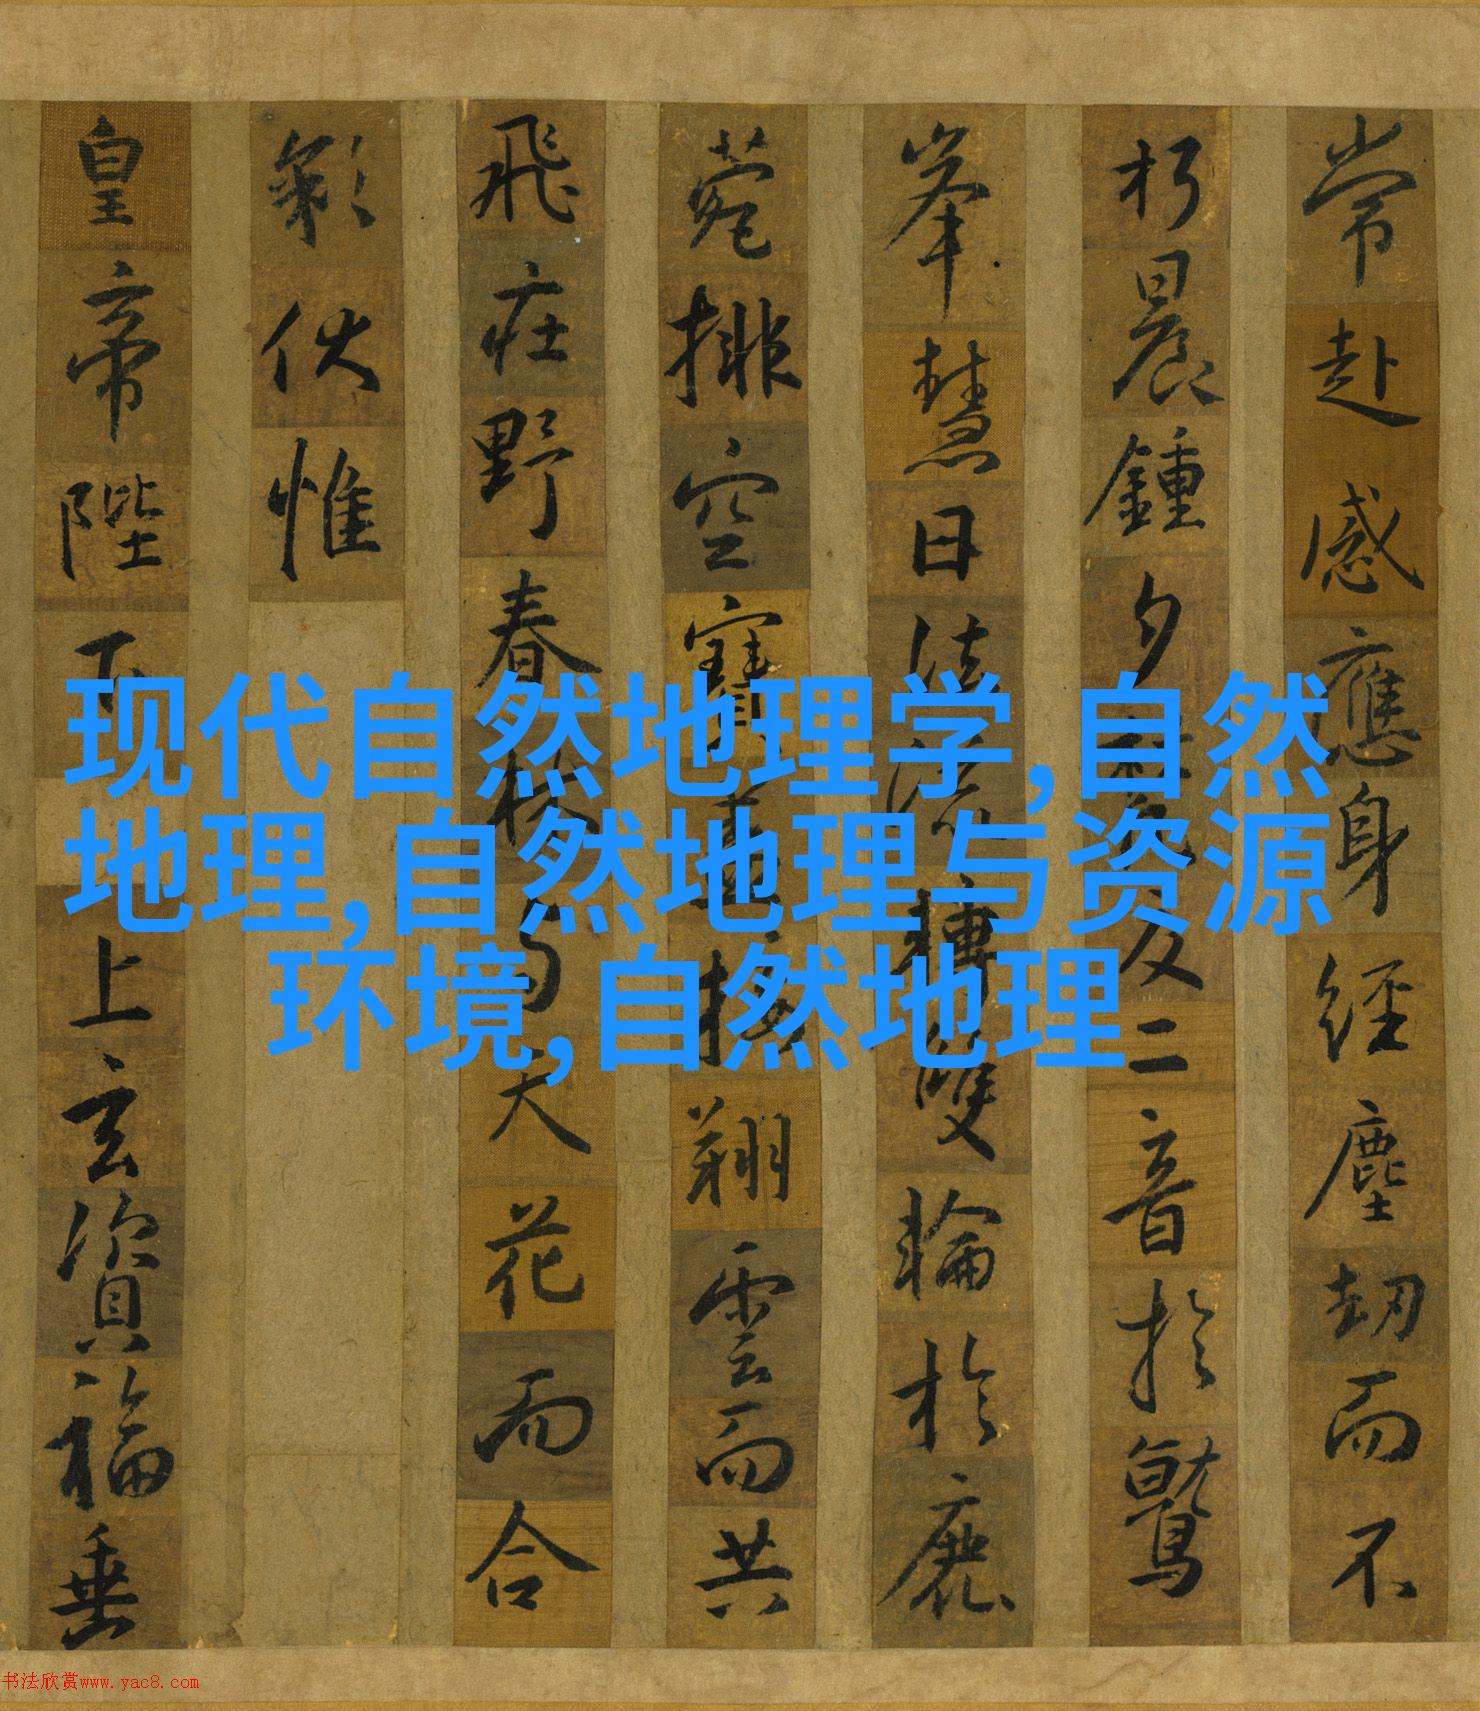 常赴感應身經塵劫而不
朽晨鍾夕交二音於鷲
峯慧日法流轉雙輪於鹿
菀排空寶蓋接翔雲而共
飛莊野春林与天花而合
彩伏惟
皇帝陛下上玄資福垂
现代自然地理学,自然
地理,自然地理与资源
环境,自然地理
书法欣赏www.yac8.com